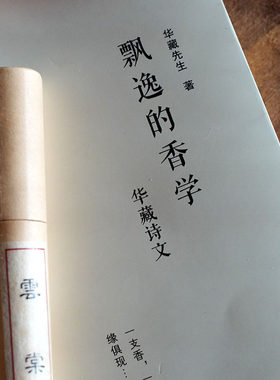 华藏先生 著
飘逸的香学
华藏诗文
一支香，一
缘俱现…
雲棠